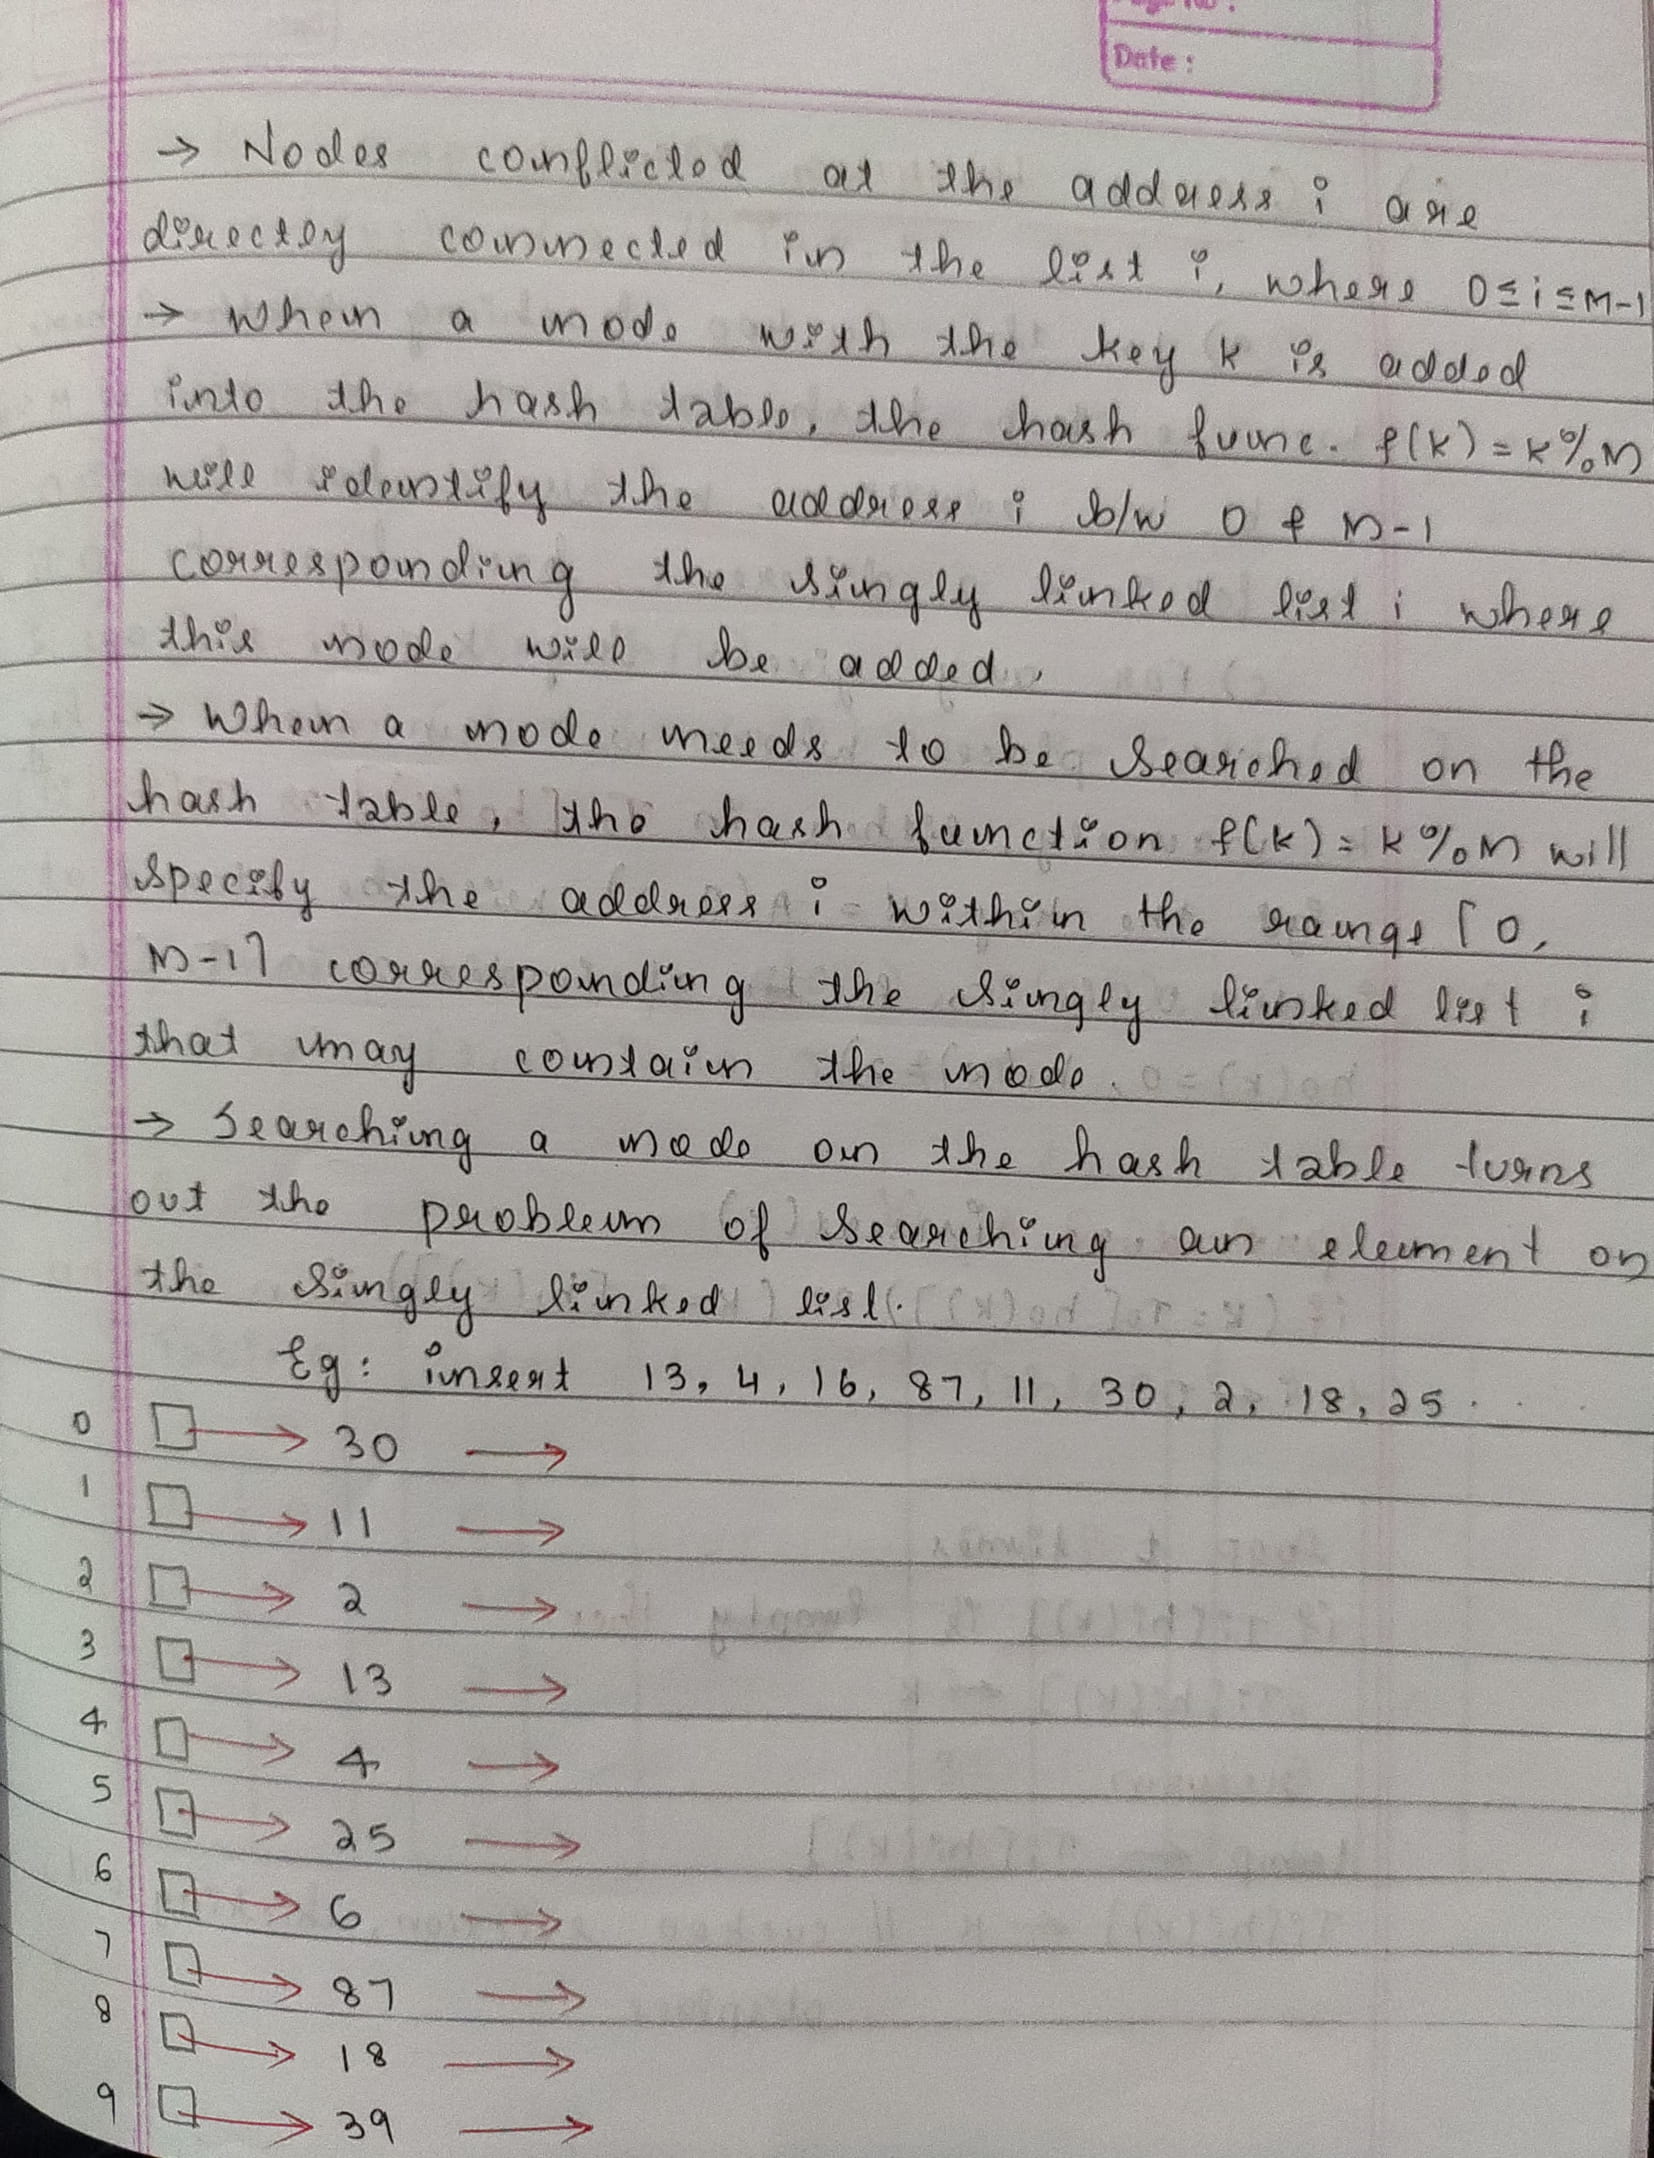 Date :
→ Nodes conflicted at the address i are
directly connected in the list i, where 0≤i≤M-1
→ When a node with the key k is added
into the hash table, the hash func. f(k)=k%M
will identify the address i b/w 0 & M-1
corresponding the singly linked list i where
this node will be added.
→ When a node needs to be searched on the
hash table, the hash function f(k)=k%M will
specify the address i within the range [0,
M-1] corresponding the singly linked list i
that may contain the node.
→ Searching a node on the hash table turns
out the problem of searching an element on
the singly linked list.
Eg: insert 13, 4, 16, 87, 11, 30, 2, 18, 25.
0 → 30 →
1 → 11 →
2 → 2 →
3 → 13 →
4 → 4 →
5 → 25 →
6 → 6 →
7 → 87 →
8 → 18 →
9 → 39 →